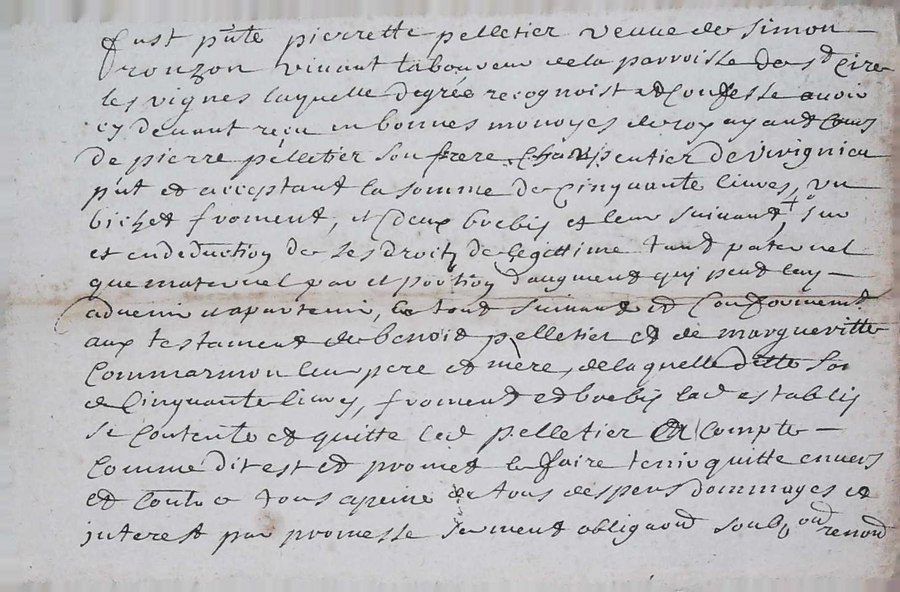 fust pnte pierrette pelletier veuve de simon
Gronzon vivant laboureur de la parroisse de st Cire
les vignes laquelle de gré recognoist et confesse avoir
cy devant reçu en bonnes monoyes de roy ayant cours
de pierre pelletier son frere charpentier de
pnt et acceptant la somme de cinquante livres, un
bichet froment, et deux brebis et leur suivant, sur
et en deduction de ses droitz de legittime tant paternel
que maternel part et portion d'augment qui peut luy
advenir et apartenir, le tout suivant et conformement
aux testament de benoit pelletier et de margueritte
Commarmon leur pere et mere, de laquelle ditte so
de cinquante livres, froment et brebis lad establis
se contente et quitte led pelletier a compte
comme dit est et promet le faire tenir quitte envers
et contre tous a peine de tous despens dommages et
interest par promesse serment obligaon soub, on renond